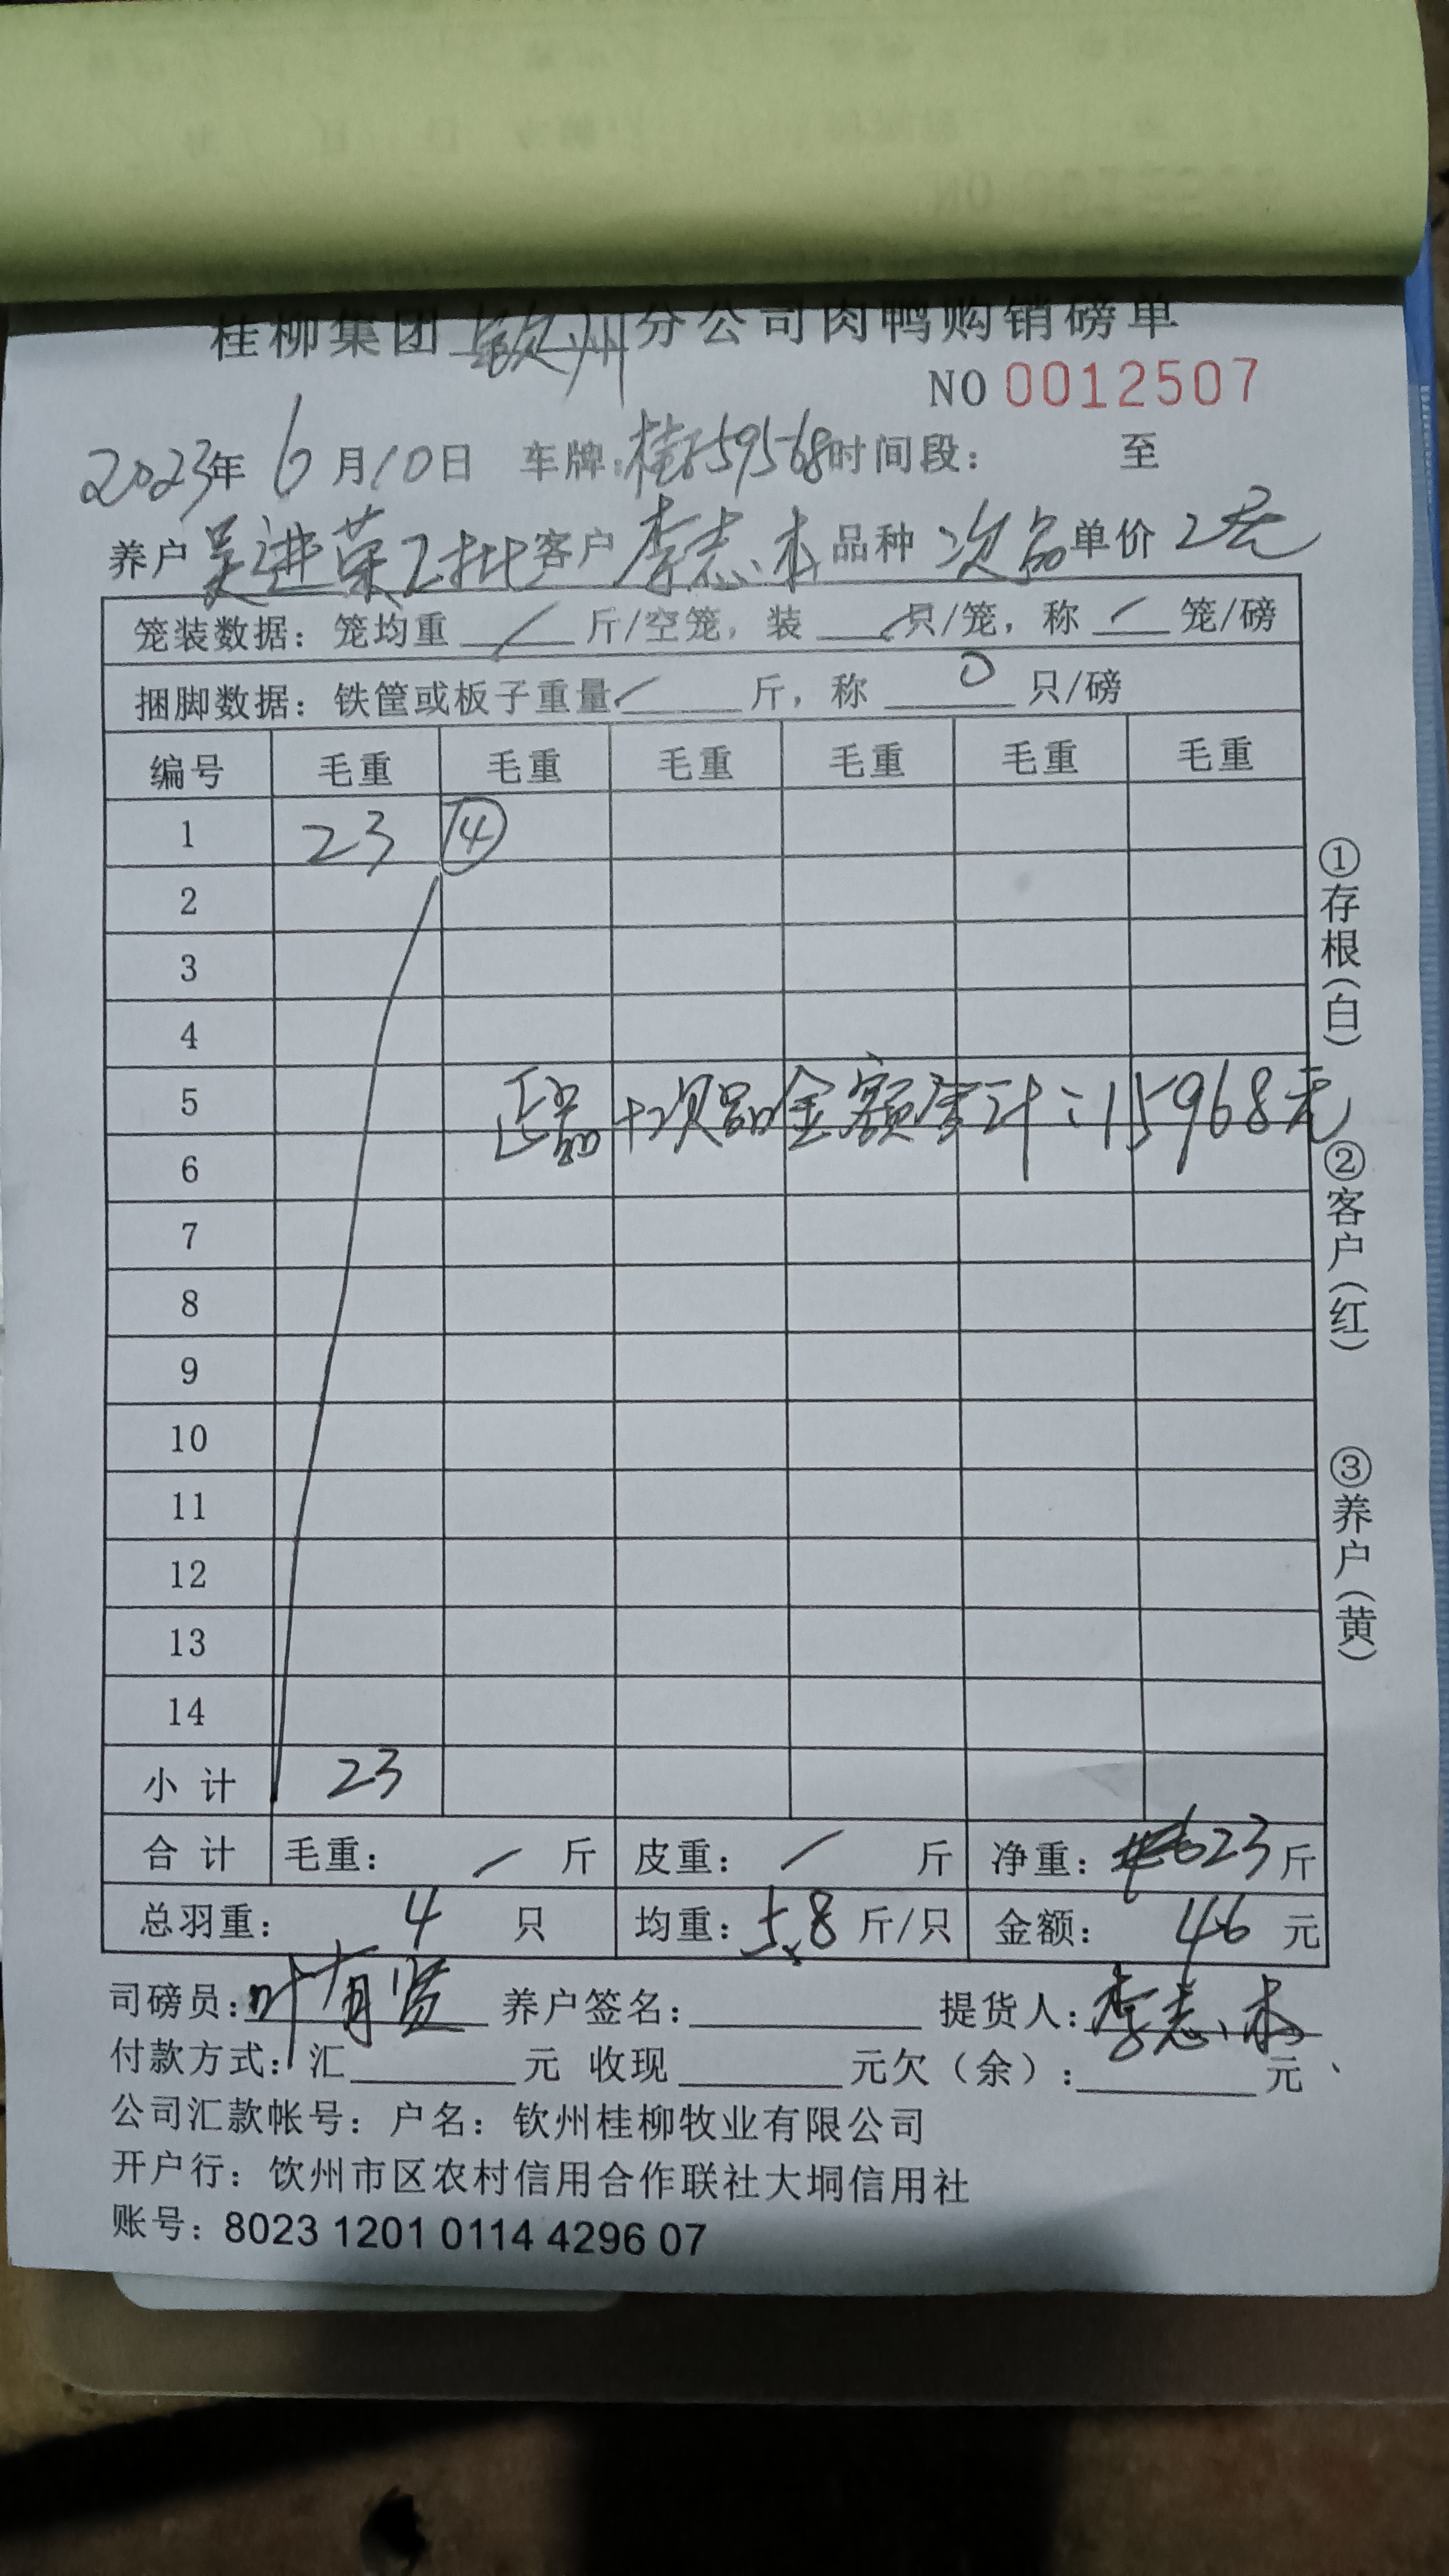 桂柳集团钦州分公司肉鸭购销磅单
NO 0012507
2023年 6月10日 车牌:桂59568时间段: 至
养户 吴进荣2批 客户 李志本 品种 次品 单价 2元
笼装数据: 笼均重 / 斤/空笼, 装 / 只/笼, 称 / 笼/磅
捆脚数据: 铁筐或板子重量 / 斤, 称 0 只/磅
编号 毛重 毛重 毛重 毛重 毛重 毛重
1 23 ④
2
3
4
5 正品+次品金额合计:15968元
6
7
8
9
10
11
12
13
14
小计 23
合计 毛重: / 斤 皮重: / 斤 净重: 23 斤
总羽重: 4 只 均重: 5.8 斤/只 金额: 46 元
司磅员: 叶有贤 养户签名: 提货人: 李志本
付款方式: 汇 元 收现 元欠(余): 元
公司汇款帐号: 户名: 钦州桂柳牧业有限公司
开户行: 钦州市区农村信用合作联社大垌信用社
账号: 8023 1201 0114 4296 07
①存根(白)
②客户(红)
③养户(黄)